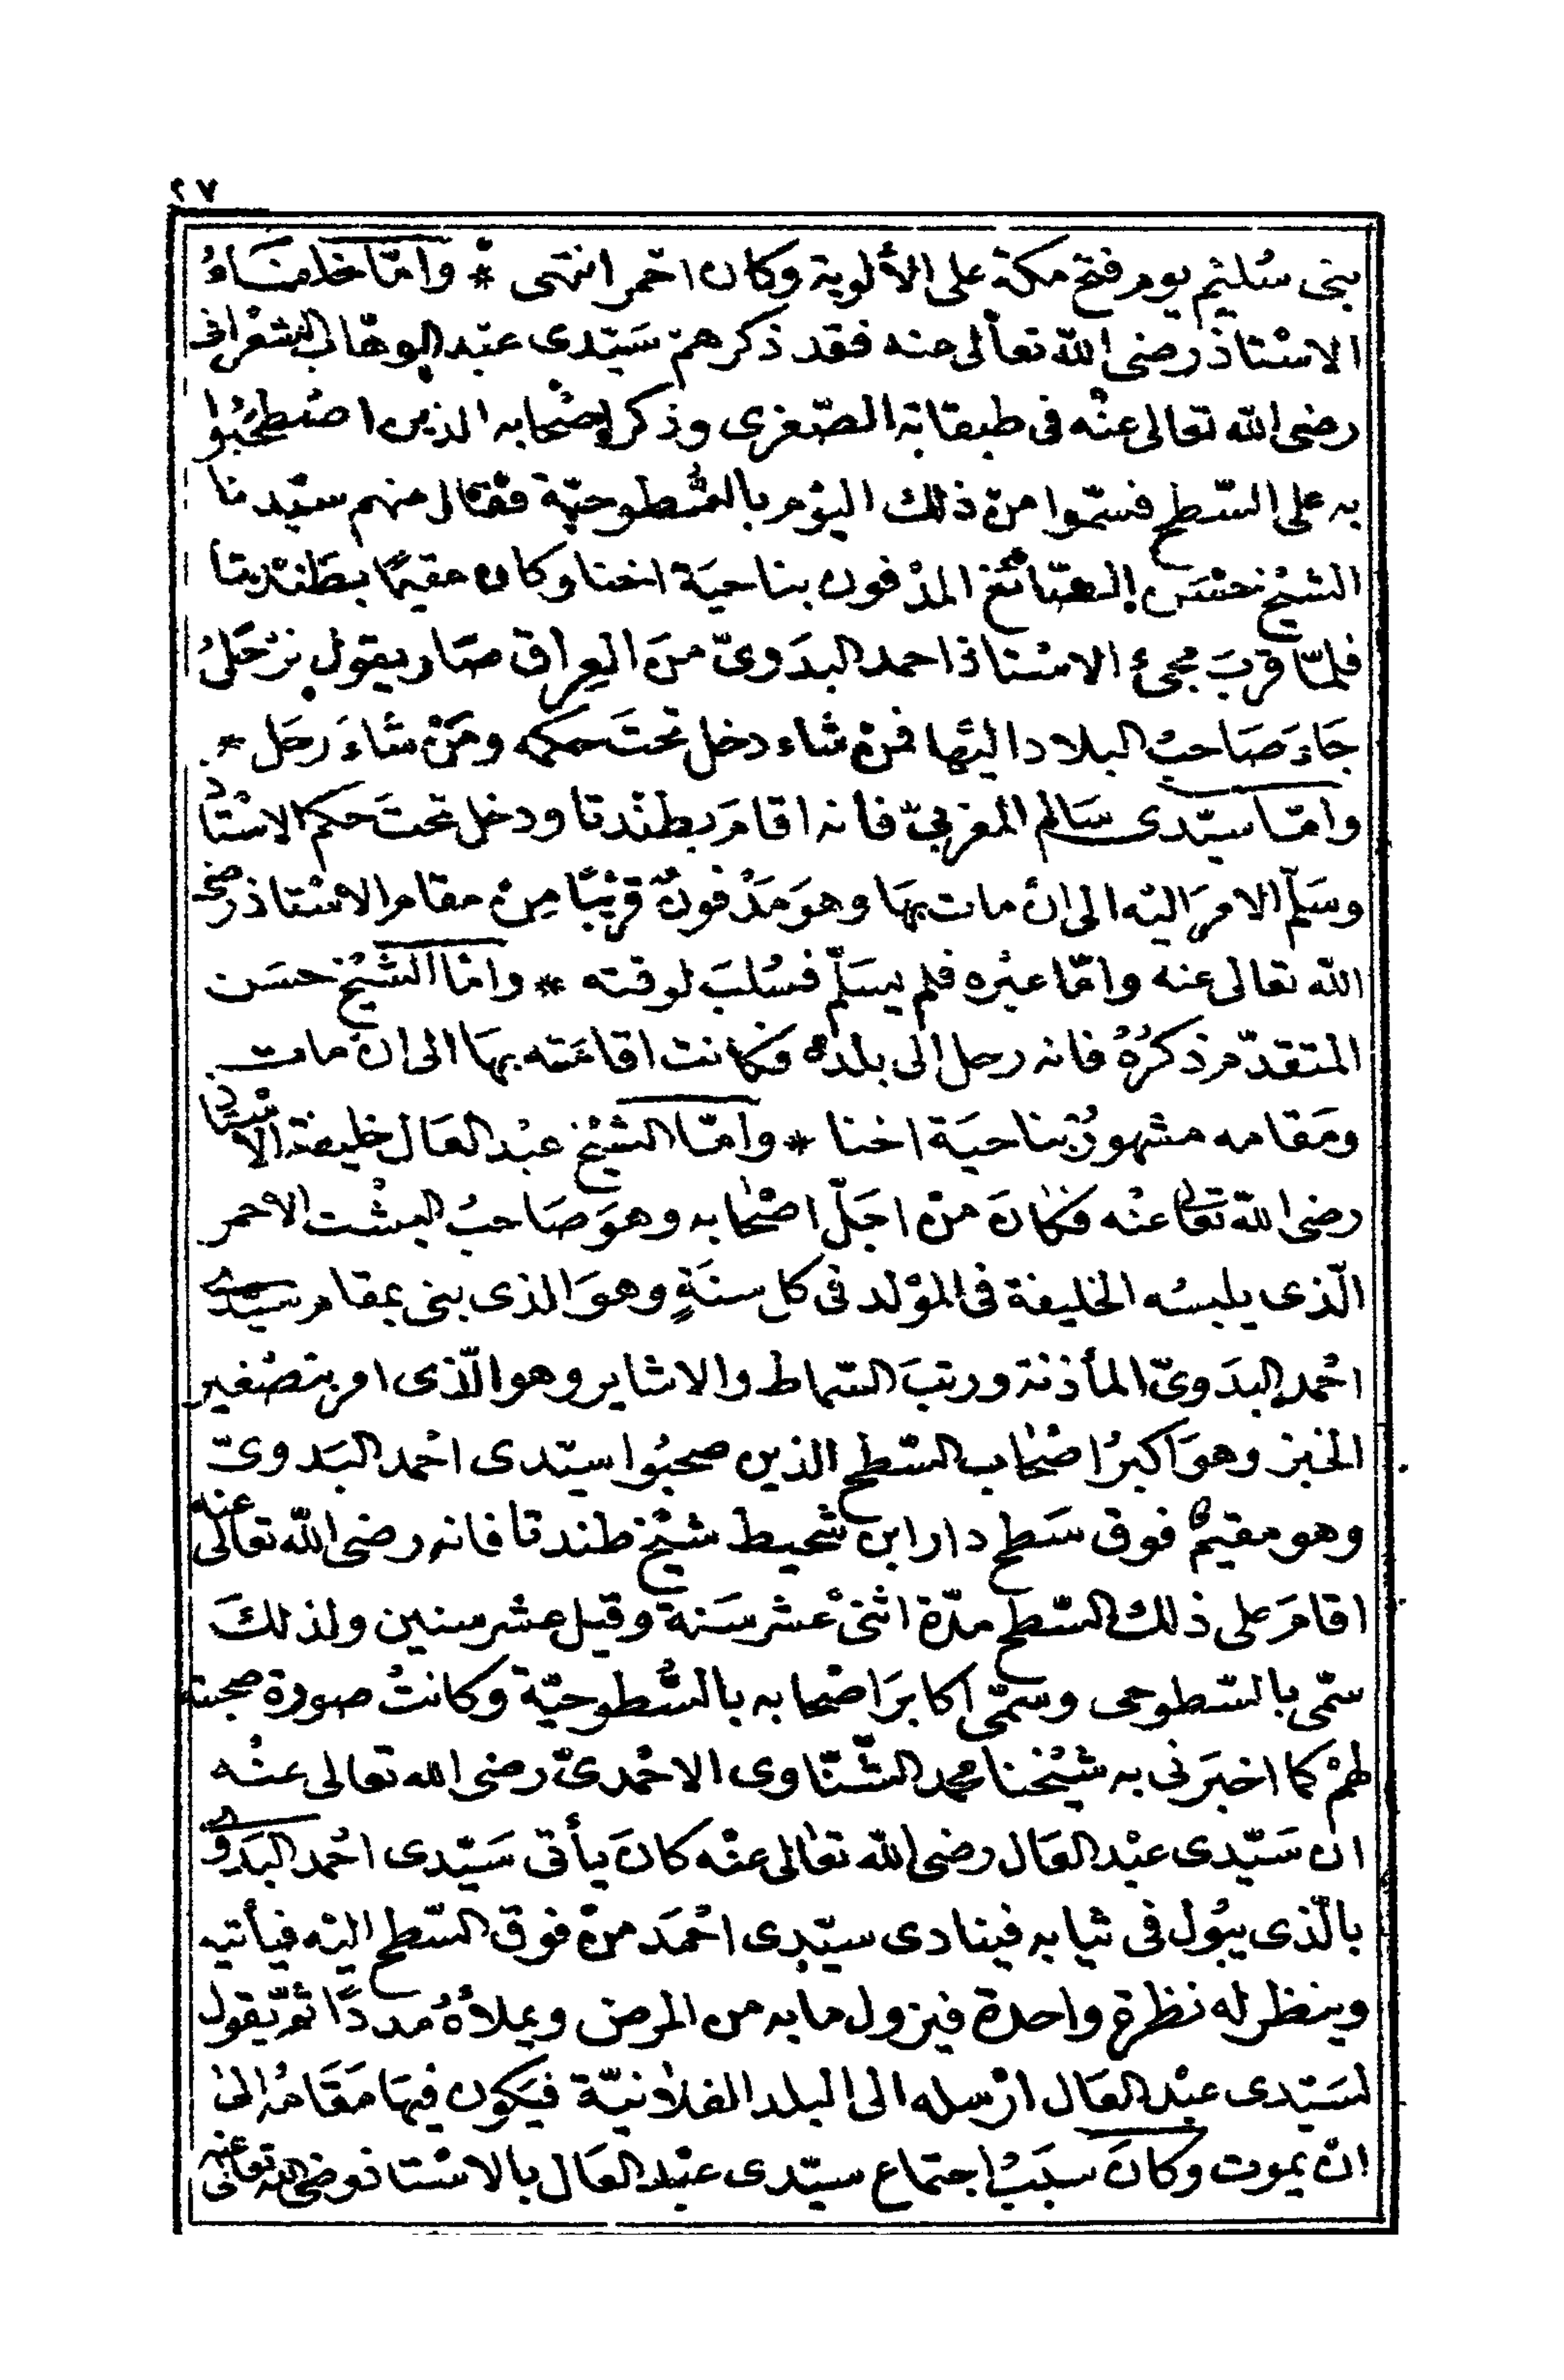 ٢٧
بنى سُليْم يوم فتح مكة على الألوية وكان احمر انتهى * وامّا خلفاءُ
الاسْتاذ رضى الله تعالى عنه فقد ذكرهم سَيّدى عبْد الوهّاب الشعْرانى
رضى الله تعالى عنْه فى طبقاته الصّغرى وذكر اصْحابه الذين اصْطحَبُوا
به على السّطح فسمّوا منْ ذلك اليوْم بالسُّطوحيّة فقال منهم سيّدنا
الشيْخ حسَن الصّائغ المدْفون بناحيَة اخنا وكان مقيمًا بطَنْدتا
فلمّا قربَ مجئ الاسْتاذ احمد البدَوىّ منَ العِراق صَار يقول نرْحَلُ
جَاءَ صَاحبُ البلاد اليْها فمنْ شاء دخل تحتَ حكمه ومَنْ شاءَ رحَل *
وامّا سيّدى سَالم المغربىّ فانه اقامَ بطنْدتا ودخل تحتَ حكم الاسْتاذ
وسَلّم الامرَ اليْه الى انْ مات بهَا وهوَ مَدْفونٌ قريْبًا مِنْ مقام الاسْتاذ رضى
الله تعالى عنه وامّا غيْره فلم يسَلّم فسُلبَ لوقته * وامّا الشيْخ حسَن
المتقدّم ذكرُهُ فانه رحل الى بلده فكانت اقامَته بهَا الى انْ مات
ومَقامه مشهورٌ بناحيَة اخنا * وامّا الشيْخ عبْد العَال خليفة الاسْتاذ
رضى الله تعالى عنْه فكانَ منْ اجَلّ اصْحابه وهوَ صَاحبُ البشْت الاحمر
الّذى يلبسُه الخليفة فى الموْلد فى كل سنَةٍ وهوَ الذى بنى بمقام سيّدى
احْمد البدَوىّ المأذنة ورتبَ السّماط والاشاير وهو الّذى امر بتصْغير
الخبز وهوَ اكبرُ اصْحاب السّطح الذين صحبُوا سيّدى احْمد البَدوىّ
وهو مقيمٌ فوق سَطح دار ابن شحيط شيْخ طندتا فانه رضى الله تعالى عنه
اقامَ على ذلك السّطح مدّة اثنىْ عشر سَنة وقيل عشر سنين ولذلكَ
سمّى بالسّطوحى وسمّى اكابرَ اصْحابه بالسُّطوحيّة وكانتْ صورة صحبته
لهمْ كما اخبرَنى به شيْخنا محمد الشّنّاوى الاحْمدىّ رضى الله تعالى عنْه
ان سَيّدى عبْد العَال رضى الله تعالى عنْه كانَ يأتى سَيّدى احْمد البَدوى
بالّذى يبُول فى ثيابه فينادى سيّدى احْمَد منْ فوق السّطح اليْه فيأتيه
وينظر له نظرة واحدة فيزول ما به من المرض ويملأهُ مددًا ثمّ يقول
لسَيّدى عبْد العَال ارْسله الى البلد الفلانيّة فيَكون فيهَا مَقَامُه الى
انْ يموت وكانَ سبَبُ اجتماع سيّدى عبْد العَال بالاسْتاذ رضى الله تعالى عنه